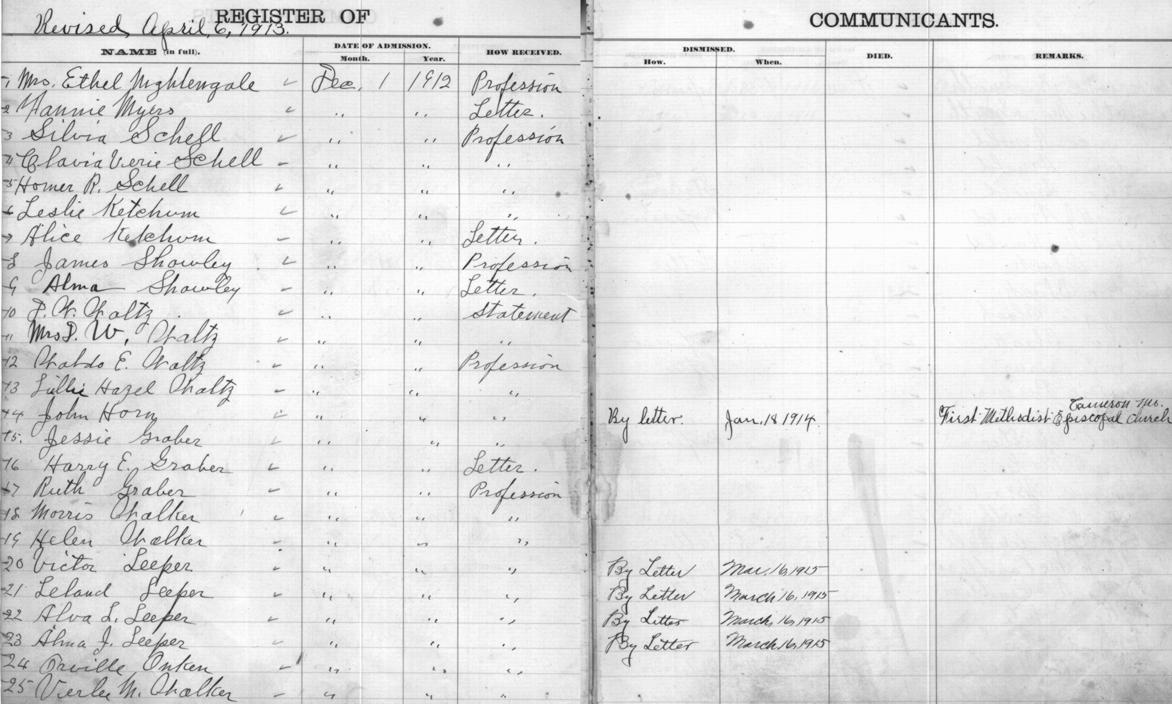 REGISTER OF COMMUNICANTS.
Revised, April, 6, 1913.
NAME (in full). DATE OF ADMISSION. HOW RECEIVED. DISMISSED. DIED. REMARKS.
Month. Year. How. When.
1 Mrs. Ethel Nightengale Dec. 1 1912 Profession
2 Fannie Myers " " Letter.
3 Silvia Schell " " Profession
4 Clavia Verie Schell " " "
5 Homer R. Schell " " "
6 Leslie Ketchum " " "
7 Alice Ketchum " " Letter.
8 James Showley " " Profession
9 Alma Showley " " Letter.
10 P. W. Waltz " " Statement
11 Mrs P. W. Waltz " " "
12 Waldo E. Waltz " " Profession
13 Lillie Hazel Waltz " " "
14 John Horn " " " By letter. Jan. 18 1914. Cameron Mo. First Methodist Episcopal Church
15. Jessie Graber " " "
16 Harry E. Graber " " Letter.
17 Ruth Graber " " Profession
18 Morris Walker " " "
19 Helen Walker " " "
20 Victor Leeper " " " By Letter Mar. 16, 1915
21 Leland Leeper " " " By Letter March 16, 1915
22 Alva L. Leeper " " " By Letter March, 16, 1915
23 Alma J. Leeper " " " By Letter March 16, 1915
24 Orville Onken " " "
25 M. Walker " " "